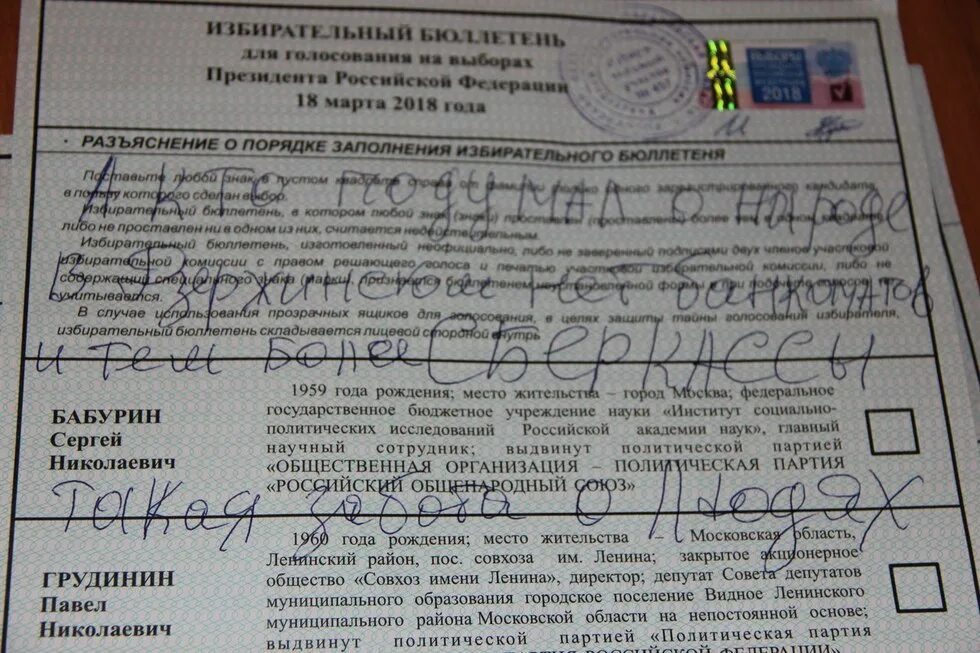 ИЗБИРАТЕЛЬНЫЙ БЮЛЛЕТЕНЬ
для голосования на выборах
Президента Российской Федерации
18 марта 2018 года
ВЫБОРЫ
2018
· РАЗЪЯСНЕНИЕ О ПОРЯДКЕ ЗАПОЛНЕНИЯ ИЗБИРАТЕЛЬНОГО БЮЛЛЕТЕНЯ
Поставьте любой знак в пустом квадрате справа от фамилии только одного зарегистрированного кандидата,
в пользу которого сделан выбор.
А кто подумал о народе
Избирательный бюллетень, в котором любой знак (знаки) проставлен (проставлены) более чем в одном квадрате
либо не проставлен ни в одном из них, считается недействительным.
Избирательный бюллетень, изготовленный неофициально, либо не заверенный подписями двух членов участковой
избирательной комиссии с правом решающего голоса и печатью участковой избирательной комиссии, либо не
содержащий специального знака (марки), признается бюллетенем неустановленной формы и при подсчете голосов не
учитывается.
в Дзержинском нет банкоматов
В случае использования прозрачных ящиков для голосования, в целях защиты тайны голосования избирателя,
избирательный бюллетень складывается лицевой стороной внутрь
и тем более СБЕРКАССЫ
БАБУРИН
Сергей
Николаевич
1959 года рождения; место жительства – город Москва; федеральное
государственное бюджетное учреждение науки «Институт социально-
политических исследований Российской академии наук», главный
научный сотрудник; выдвинут политической партией
«ОБЩЕСТВЕННАЯ ОРГАНИЗАЦИЯ – ПОЛИТИЧЕСКАЯ ПАРТИЯ
«РОССИЙСКИЙ ОБЩЕНАРОДНЫЙ СОЮЗ»
такая забота о людях
ГРУДИНИН
Павел
Николаевич
1960 года рождения; место жительства – Московская область,
Ленинский район, пос. совхоза им. Ленина; закрытое акционерное
общество «Совхоз имени Ленина», директор; депутат Совета депутатов
муниципального образования городское поселение Видное Ленинского
муниципального района Московской области на непостоянной основе;
выдвинут политической партией «Политическая партия
РОССИЙСКОЙ ФЕДЕРАЦИИ»